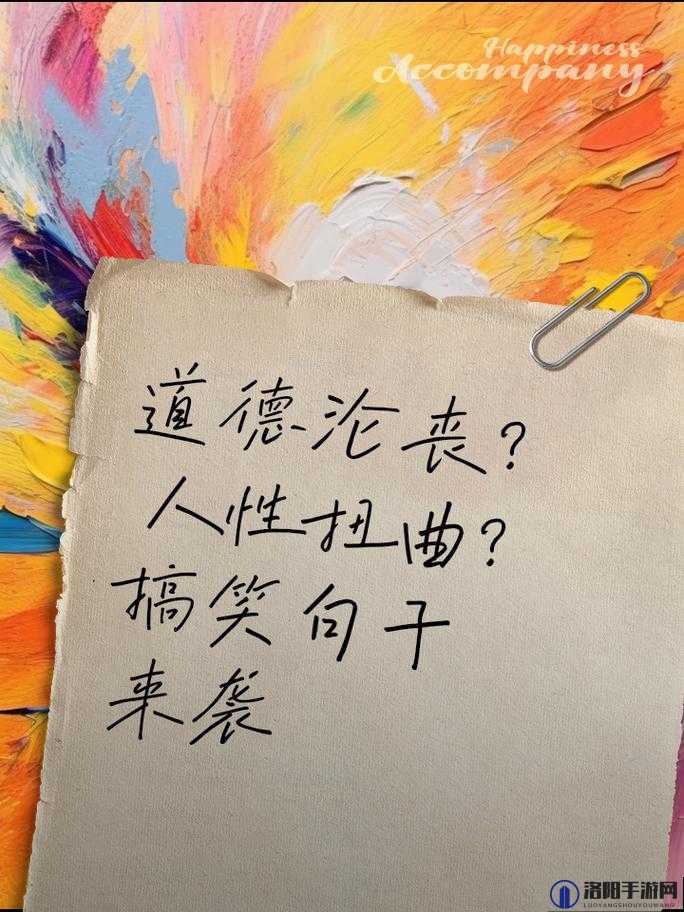 Happiness
Accompany
道德沦丧?
人性扭曲?
搞笑句子
来袭
洛阳手游网
LUOYANGSHOUYOUWANG